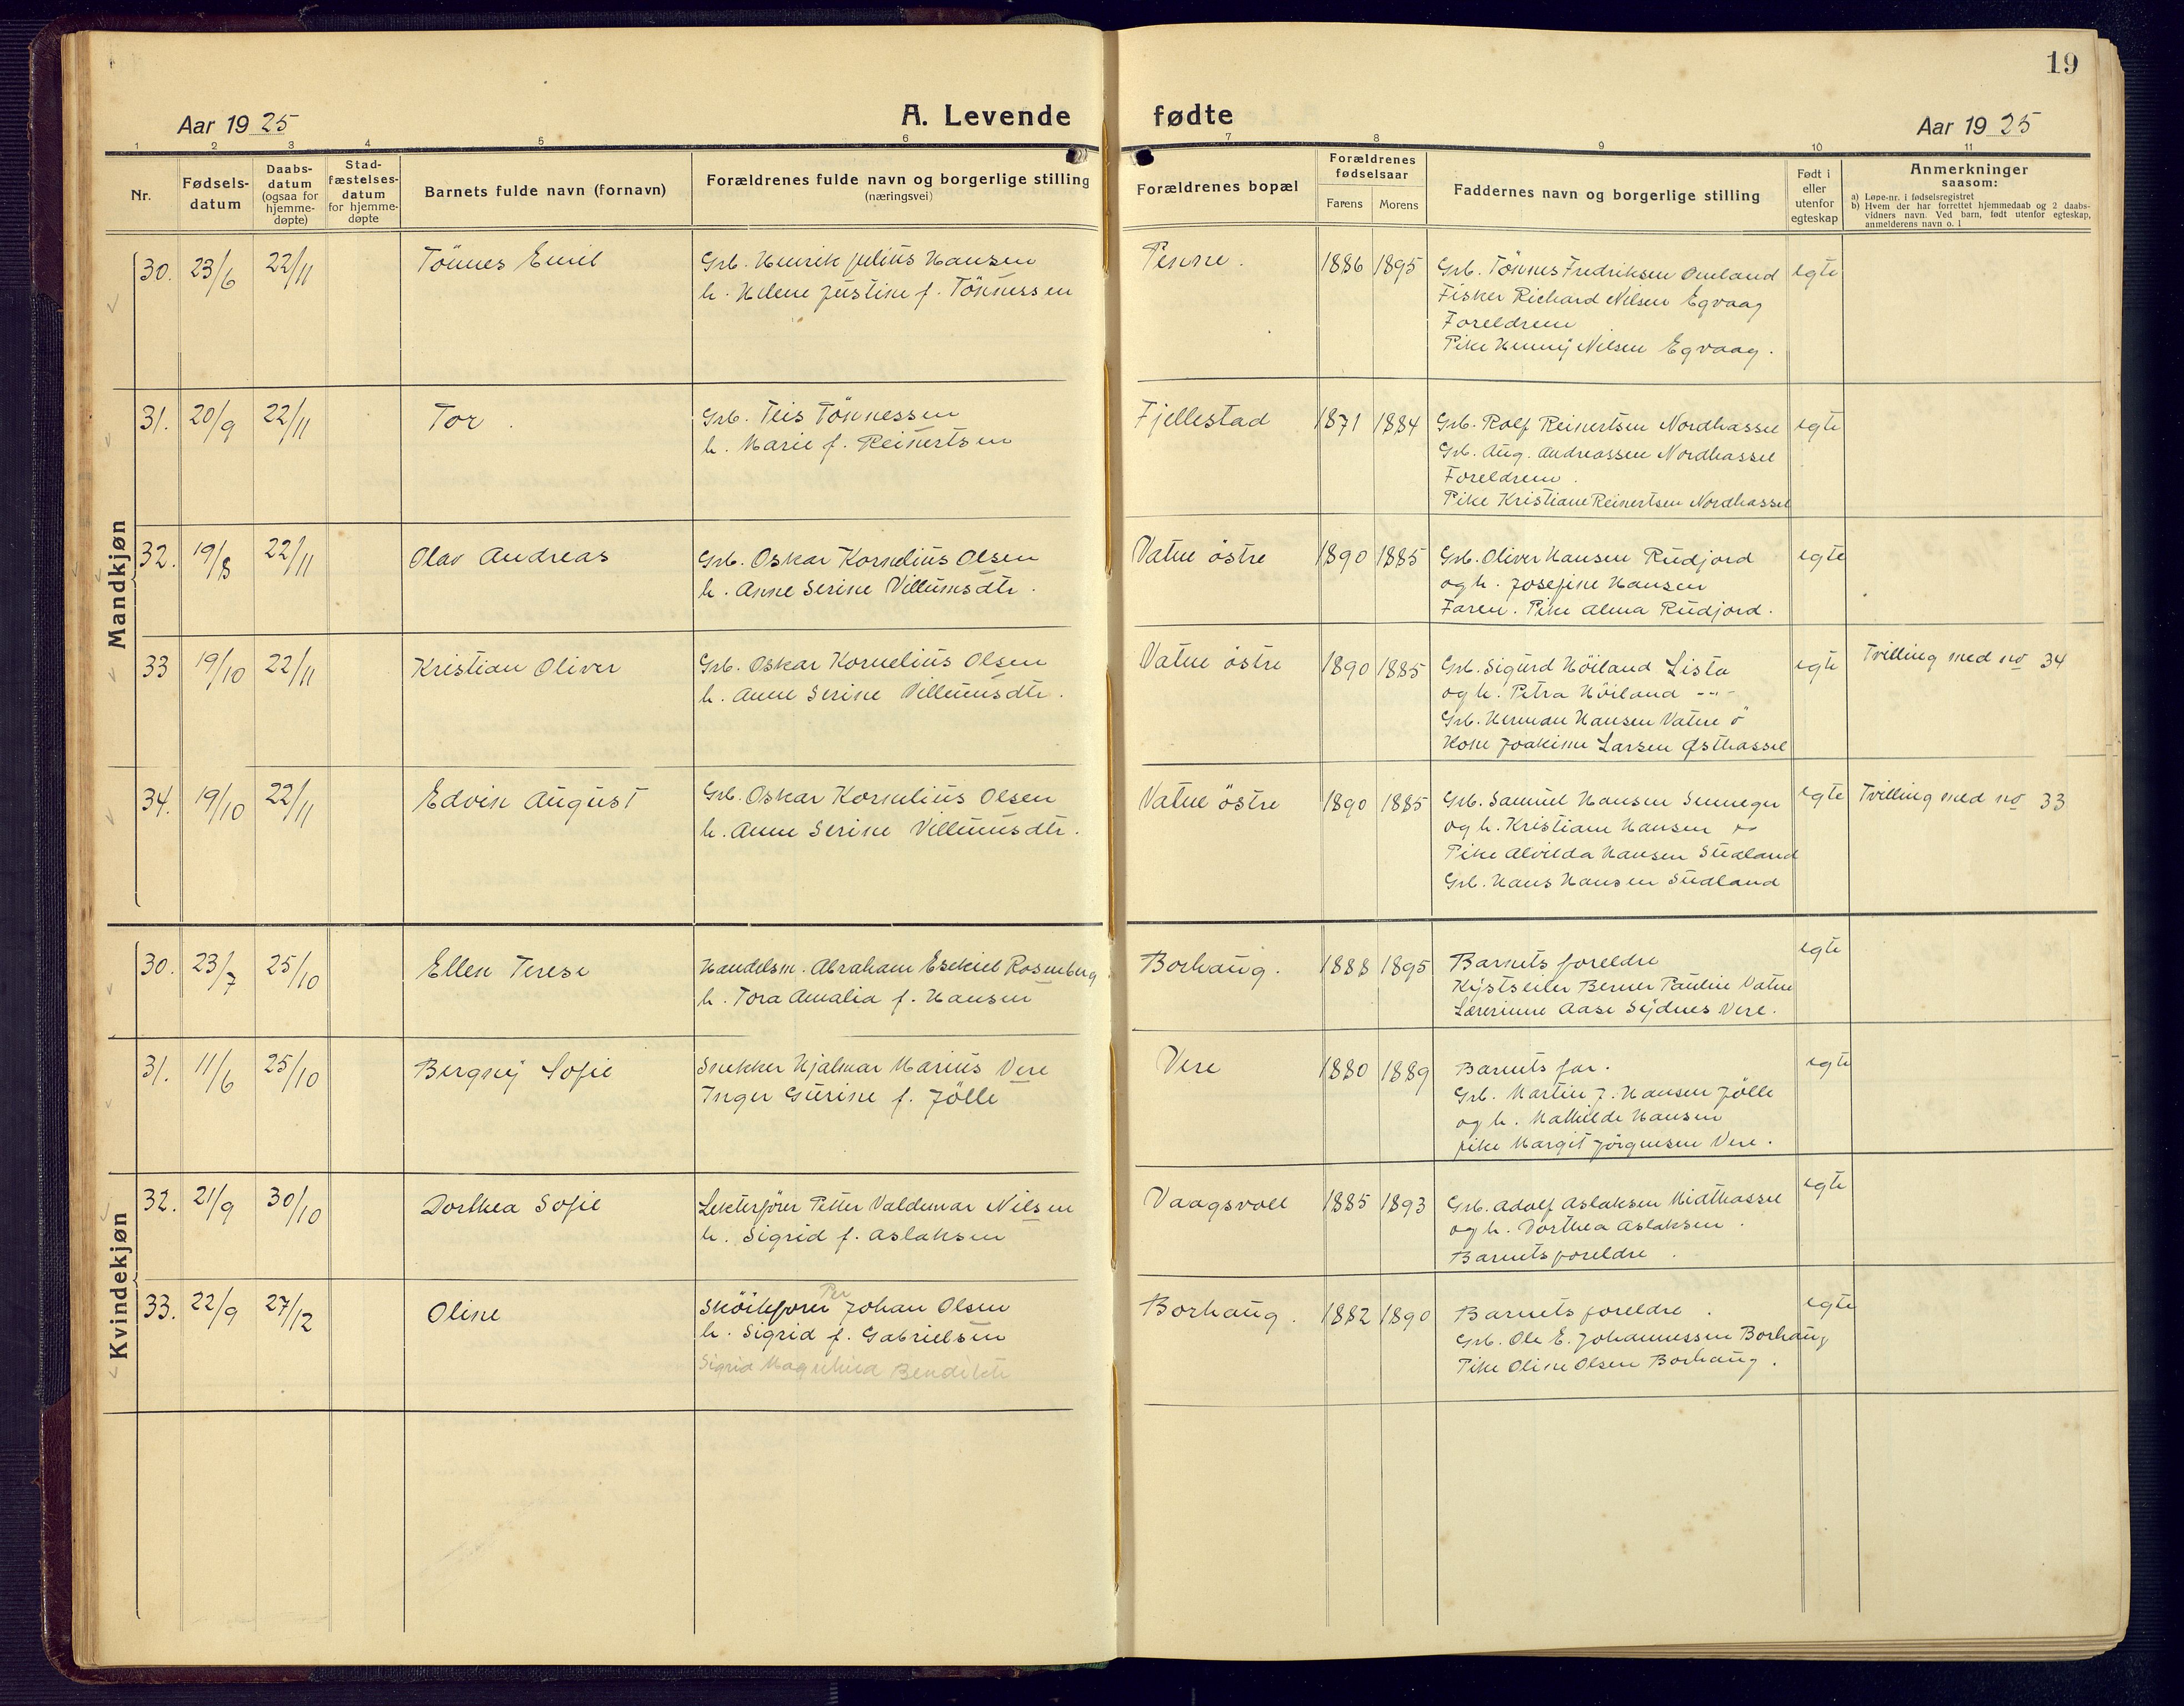 19
Aar 1925
A. Levende fødte
Aar 1925
1 2 3 4 5 6 7 8 9 10 11
Nr.
Fødsels-
datum
Daabs-
datum
(ogsaa for
hjemme-
døpte)
Stad-
fæstelses-
datum
for hjemme-
døpte
Barnets fulde navn (fornavn)
Forældrenes fulde navn og borgerlige stilling
(næringsvei)
Forældrenes bopæl
Forældrenes
fødselsaar
Farens Morens
Faddernes navn og borgerlige stilling
Født i
eller
utenfor
egteskap
Anmerkninger
saasom:
a) Løpe-nr. i fødselsregistret
b) Hvem der har forrettet hjemmedaab og 2 daabs-
vidners navn. Ved barn, født utenfor egteskap,
anmelderens navn o. l
Mandkjøn
30. 23/6 22/11 Tönnes Emil
Grb. Henrik Julius Hansen
h. Helene Justine f. Tönnessen
Penne.
1886 1895
Grb. Tönnes Fredriksen Omland
Fisker Richard Nilsen Egvaag
Foreldrene
Pike Henny Nilsen Egvaag.
egte
31. 20/9 22/11 Tor.
Grb. Teis Tönnessen
h. Marie f. Reinertsen
Fjellestad
1871 1884
Grb. Rolf Reinertsen Nordhassel
Grb. Aug. Andreassen Nordhassel
Foreldrene.
Pike Kristiane Reinertsen Nordhassel
egte
32. 19/8 22/11 Olav Andreas
Grb. Oskar Kornelius Olsen
h. Anne Serine Villumsdtr.
Vatne östre
1890 1885
Grb. Oliver Hansen Rudjord
og h. Josefine Hansen
Faren. Pike Alma Rudjord.
egte
33 19/10 22/11 Kristian Oliver
Grb. Oskar Kornelius Olsen
h. Anne Serine Villumsdtr.
Vatne östre
1890 1885
Grb. Sigurd Höiland Lista
og h. Petra Höiland -"-
Grb. Herman Hansen Vatne ö
Kone Joakime Larsen Østhassel
egte
Tvilling med no 34
34. 19/10 22/11 Edvin August
Grb. Oskar Kornelius Olsen
h. Anne Serine Villumsdtr.
Vatne östre
1890 1885
Grb. Samuel Hansen
og h. Kristiane Hansen
Pike Alvilda Hansen Sudland
Grb. Hans Hansen Sudland
egte
Tvilling med no 33
Kvindekjøn
30. 23/7 25/10 Ellen Terese
Handelsm. Abraham Esekiel Rosenberg
h. Tora Amalia f. Hansen
Borhaug.
1888 1895
Barnets foreldre
Berner Pauline Vatne
Lærerinne Aase Sydnes Vere.
egte
31. 11/6 25/10 Bergny Sofie
Snekker Hjalmar Marius Vere
Inger Gurine f. Jölle
Vere
1880 1889
Barnets far.
Grb. Martin J. Hansen Jölle
og h. Mathilde Hansen
pike Margit Jörgensen Vere.
egte
32. 21/9 30/10 Dorthea Sofie
Lekterfører Petter Valdemar Nilsen
h. Sigrid f. Aslaksen
Vaagsvoll
1885 1893
Grb. Adolf Aslaksen Midthassel
og h. Dorthea Aslaksen.
Barnets foreldre.
egte
33. 22/9 27/12 Oline
Per
Skøiteförer Johan Olsen
h. Sigrid f. Gabrielsen
Sigrid Magnhild Bendikte
Borhaug.
1882 1890
Barnets foreldre.
Grb. Ole E. Johannessen Borhaug
Pike Oline Olsen Borhaug.
egte